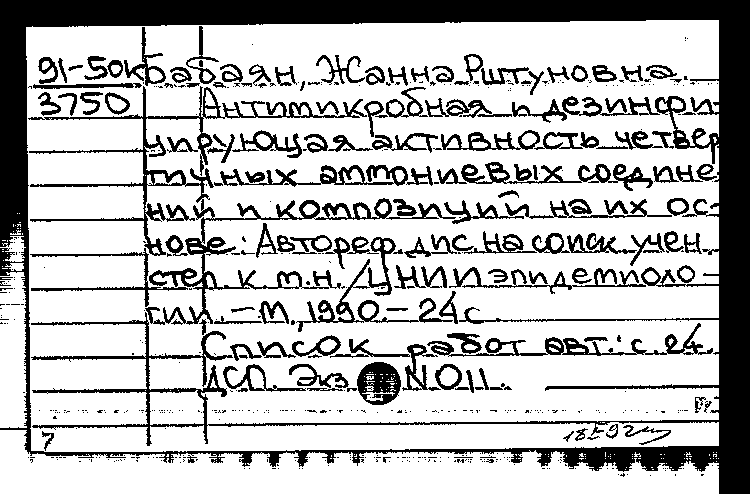 91-50к Бабаян, Жанна Рштуновна.
3750 Антимикробная и дезинфи-
цирующая активность четвер
тичных аммониевых соедине
ний и композиций на их ос-
нове: Автореф. дис. на соиск. учен.
степ. к. м. н. / ЦНИИ эпидемиоло-
гии. - М., 1990. - 24 с.
Список работ авт.: с. 24.
ДСП. Экз. N 011.
7